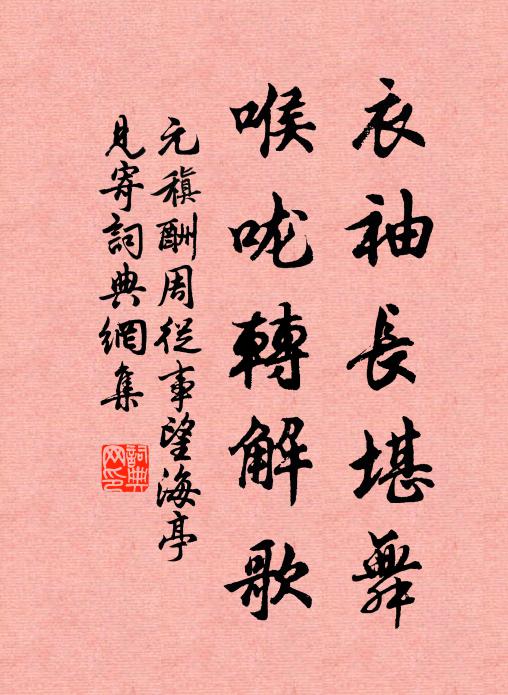 衣袖長堪舞
喉嚨轉解歌
元稹酬周從事望海亭
見寄詞典網集
詞典
网印